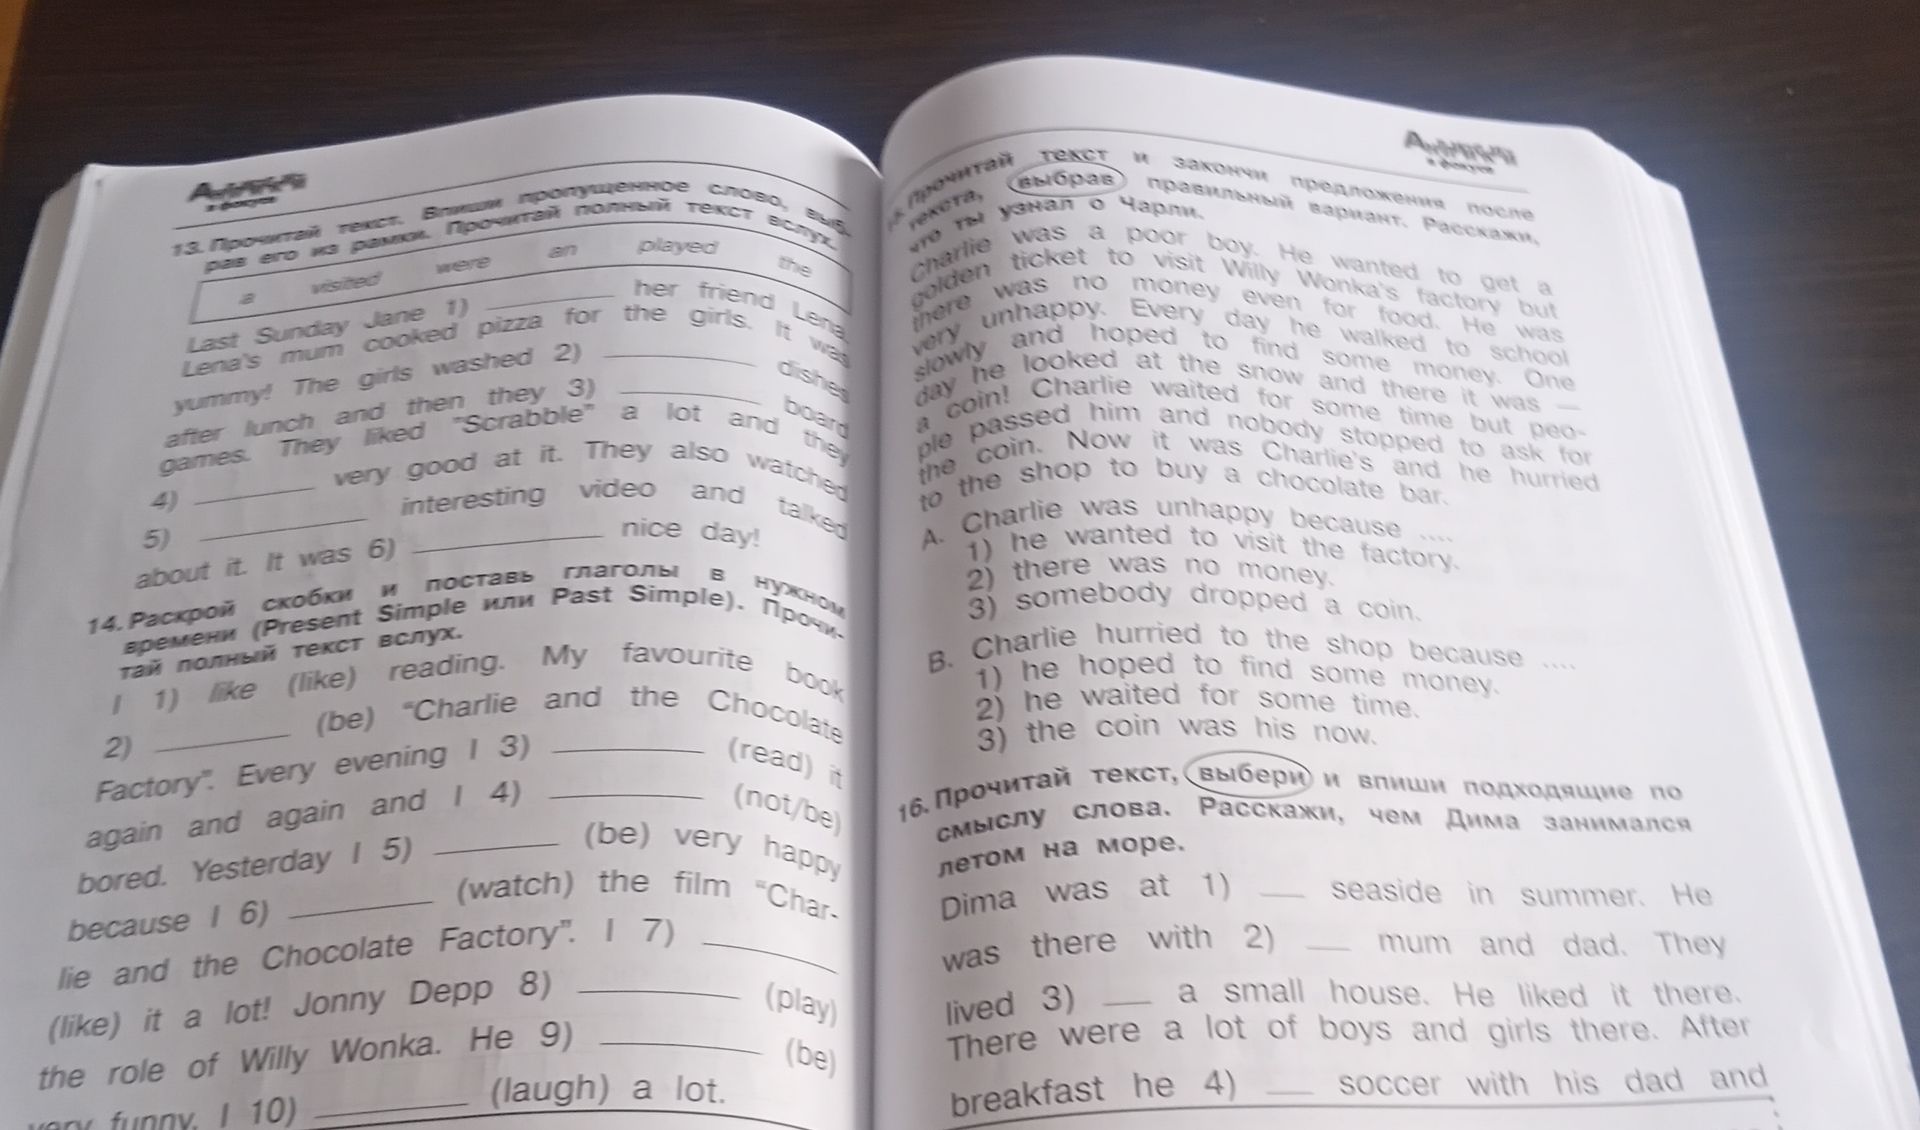 13. Прочитай текст. Впиши пропущенное слово, выб-
рав его из рамки. Прочитай полный текст вслух.
a visited were an played the
Last Sunday Jane 1) ________ her friend Lena.
Lena's mum cooked pizza for the girls. It was
yummy! The girls washed 2) ________ dishes
after lunch and then they 3) ________ board
games. They liked "Scrabble" a lot and they
4) ________ very good at it. They also watched
5) ________ interesting video and talked
about it. It was 6) ________ nice day!
14. Раскрой скобки и поставь глаголы в нужном
времени (Present Simple или Past Simple). Прочи-
тай полный текст вслух.
I 1) like (like) reading. My favourite book
2) ________ (be) "Charlie and the Chocolate
Factory". Every evening I 3) ________ (read) it
again and again and I 4) ________ (not/be)
bored. Yesterday I 5) ________ (be) very happy
because I 6) ________ (watch) the film "Char-
lie and the Chocolate Factory". I 7) ________
(like) it a lot! Jonny Depp 8) ________ (play)
the role of Willy Wonka. He 9) ________ (be)
very funny. I 10) ________ (laugh) a lot.
Прочитай текст и закончи предложения после
текста, выбрав правильный вариант. Расскажи,
что ты узнал о Чарли.
Charlie was a poor boy. He wanted to get a
golden ticket to visit Willy Wonka's factory but
there was no money even for food. He was
very unhappy. Every day he walked to school
slowly and hoped to find some money. One
day he looked at the snow and there it was —
a coin! Charlie waited for some time but peo-
ple passed him and nobody stopped to ask for
the coin. Now it was Charlie's and he hurried
to the shop to buy a chocolate bar.
A. Charlie was unhappy because ....
1) he wanted to visit the factory.
2) there was no money.
3) somebody dropped a coin.
B. Charlie hurried to the shop because ....
1) he hoped to find some money.
2) he waited for some time.
3) the coin was his now.
16. Прочитай текст, выбери и впиши подходящие по
смыслу слова. Расскажи, чем Дима занимался
летом на море.
Dima was at 1) ___ seaside in summer. He
was there with 2) ___ mum and dad. They
lived 3) ___ a small house. He liked it there.
There were a lot of boys and girls there. After
breakfast he 4) ___ soccer with his dad and